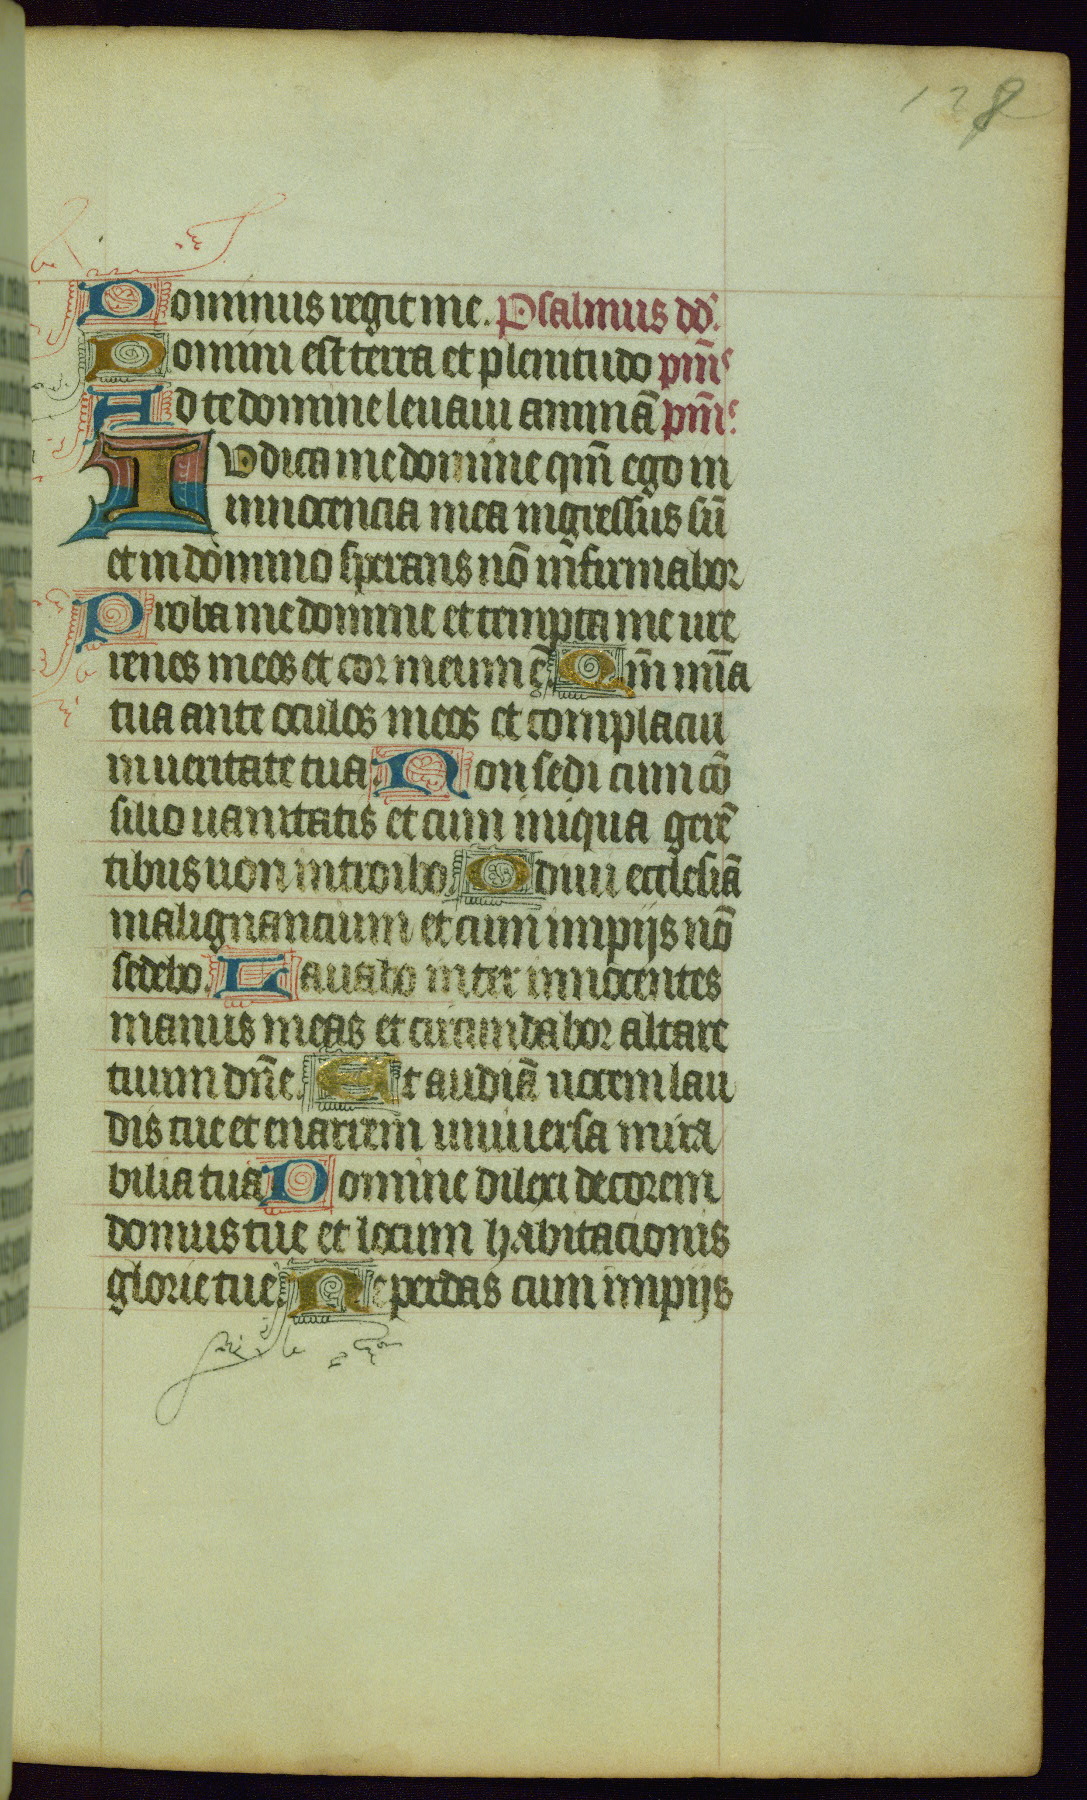 128
Dominus regit me. Psalmus dd̄.
Domini est terra et plenitudo pm̄s
Ad te domine leuaui animā pm̄s.
Iudica me domine qm̄ ego in
innocencia mea ingressus sū
et in domino sperans nō infirmabor
Proba me domine et tempta me ure
renes meos et cor meum. Qm̄ mīa
tua ante oculos meos et complacui
in ueritate tua. Non sedi cum cō
silio uanitatis et cum iniqua gerē
tibus non introibo. Odiui ecclesiā
malignancium et cum impijs nō
sedebo. Lauabo inter innocentes
manus meas et circumdabor altare
tuum dn̄e. Et audiā uocem lau
dis tue et enarrem uniuersa mira
bilia tua Domine dilexi decorem
domus tue et locum habitacionis
glorie tue. Ne perdas cum impijs